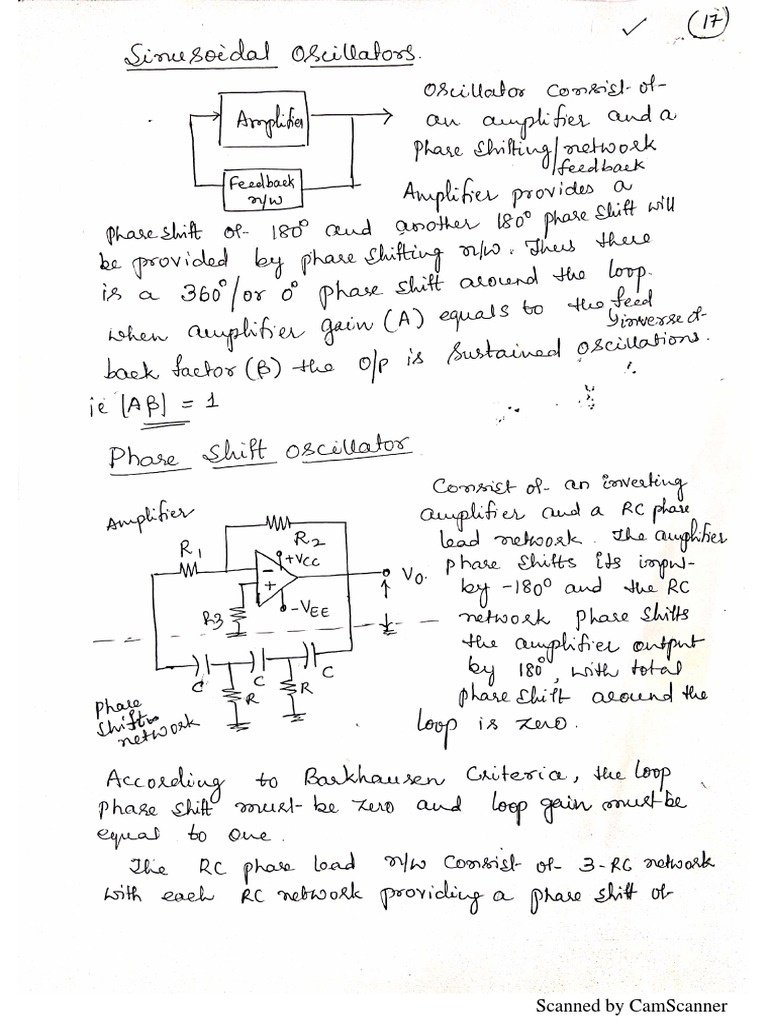 (17)
Sinusoidal Oscillators.
Amplifier
Feedback
n/w
Oscillator consist of
an amplifier and a
phase shifting/network
feedback
Amplifier provides a
phase shift of 180° and another 180° phase shift will
be provided by phase shifting n/w. Thus there
is a 360°/or 0° phase shift around the loop.
when amplifier gain (A) equals to the feed
inverse of
back factor (β) the o/p is sustained oscillations.
ie |Aβ| = 1
Phase Shift Oscillator
Amplifier
R1
R2
+VCC
-
+
R3
-VEE
Vo.
C
C
C
R
R
Phase
shift
network
Consist of an inverting
amplifier and a RC phase
lead network. The amplifier
phase shifts its input
by -180° and the RC
network phase shifts
the amplifier output
by 180°, with total
phase shift around the
loop is zero.
According to Barkhausen Criteria, the loop
phase shift must be zero and loop gain must be
equal to one.
The RC phase lead n/w consist of 3-RC network
with each RC network providing a phase shift of
Scanned by CamScanner